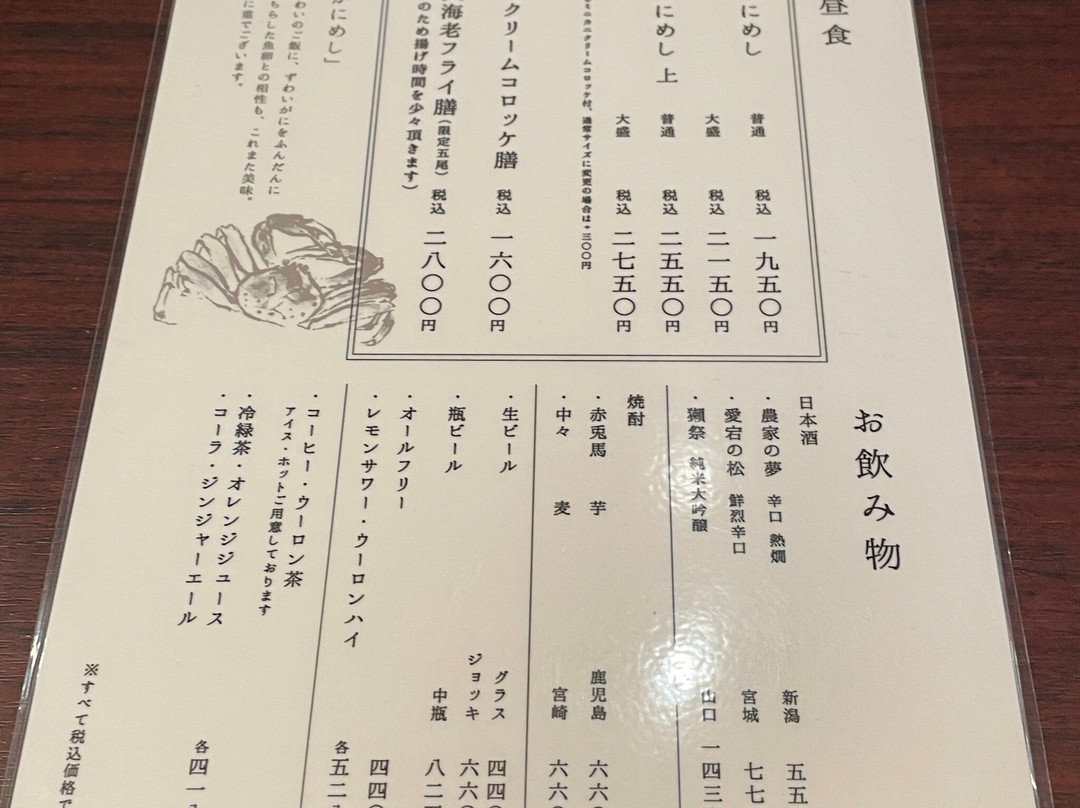 昼食
にめし
普通 税込 一九五〇円
大盛 税込 二一五〇円
にめし 上
普通 税込 二五五〇円
大盛 税込 二七五〇円
ミニカニクリームコロッケ付、通常サイズに変更の場合は+三〇〇円
クリームコロッケ膳 税込 一六〇〇円
海老フライ膳（限定五尾） 税込 二八〇〇円
のため揚げ時間を少々頂きます）
にめし」
わいのご飯に、ずわいがにをふんだんに
ちらした魚卵との相性も、これまた美味。
に重でございます。
お飲み物
日本酒
・農家の夢 辛口 熱燗 新潟 五五
・愛宕の松 鮮烈辛口 宮城 七七
・獺祭 純米大吟醸 山口 一四三
焼酎
・赤兎馬 芋 鹿児島 六六〇
・中々 麦 宮崎 六六
・生ビール グラス 四四〇
ジョッキ 六六〇
・瓶ビール 中瓶 八二
・オールフリー 四四〇
・レモンサワー・ウーロンハイ 各五二
・コーヒー・ウーロン茶
アイス・ホットご用意しております
・冷緑茶・オレンジジュース
・コーラ・ジンジャーエール 各四一
※すべて税込価格で